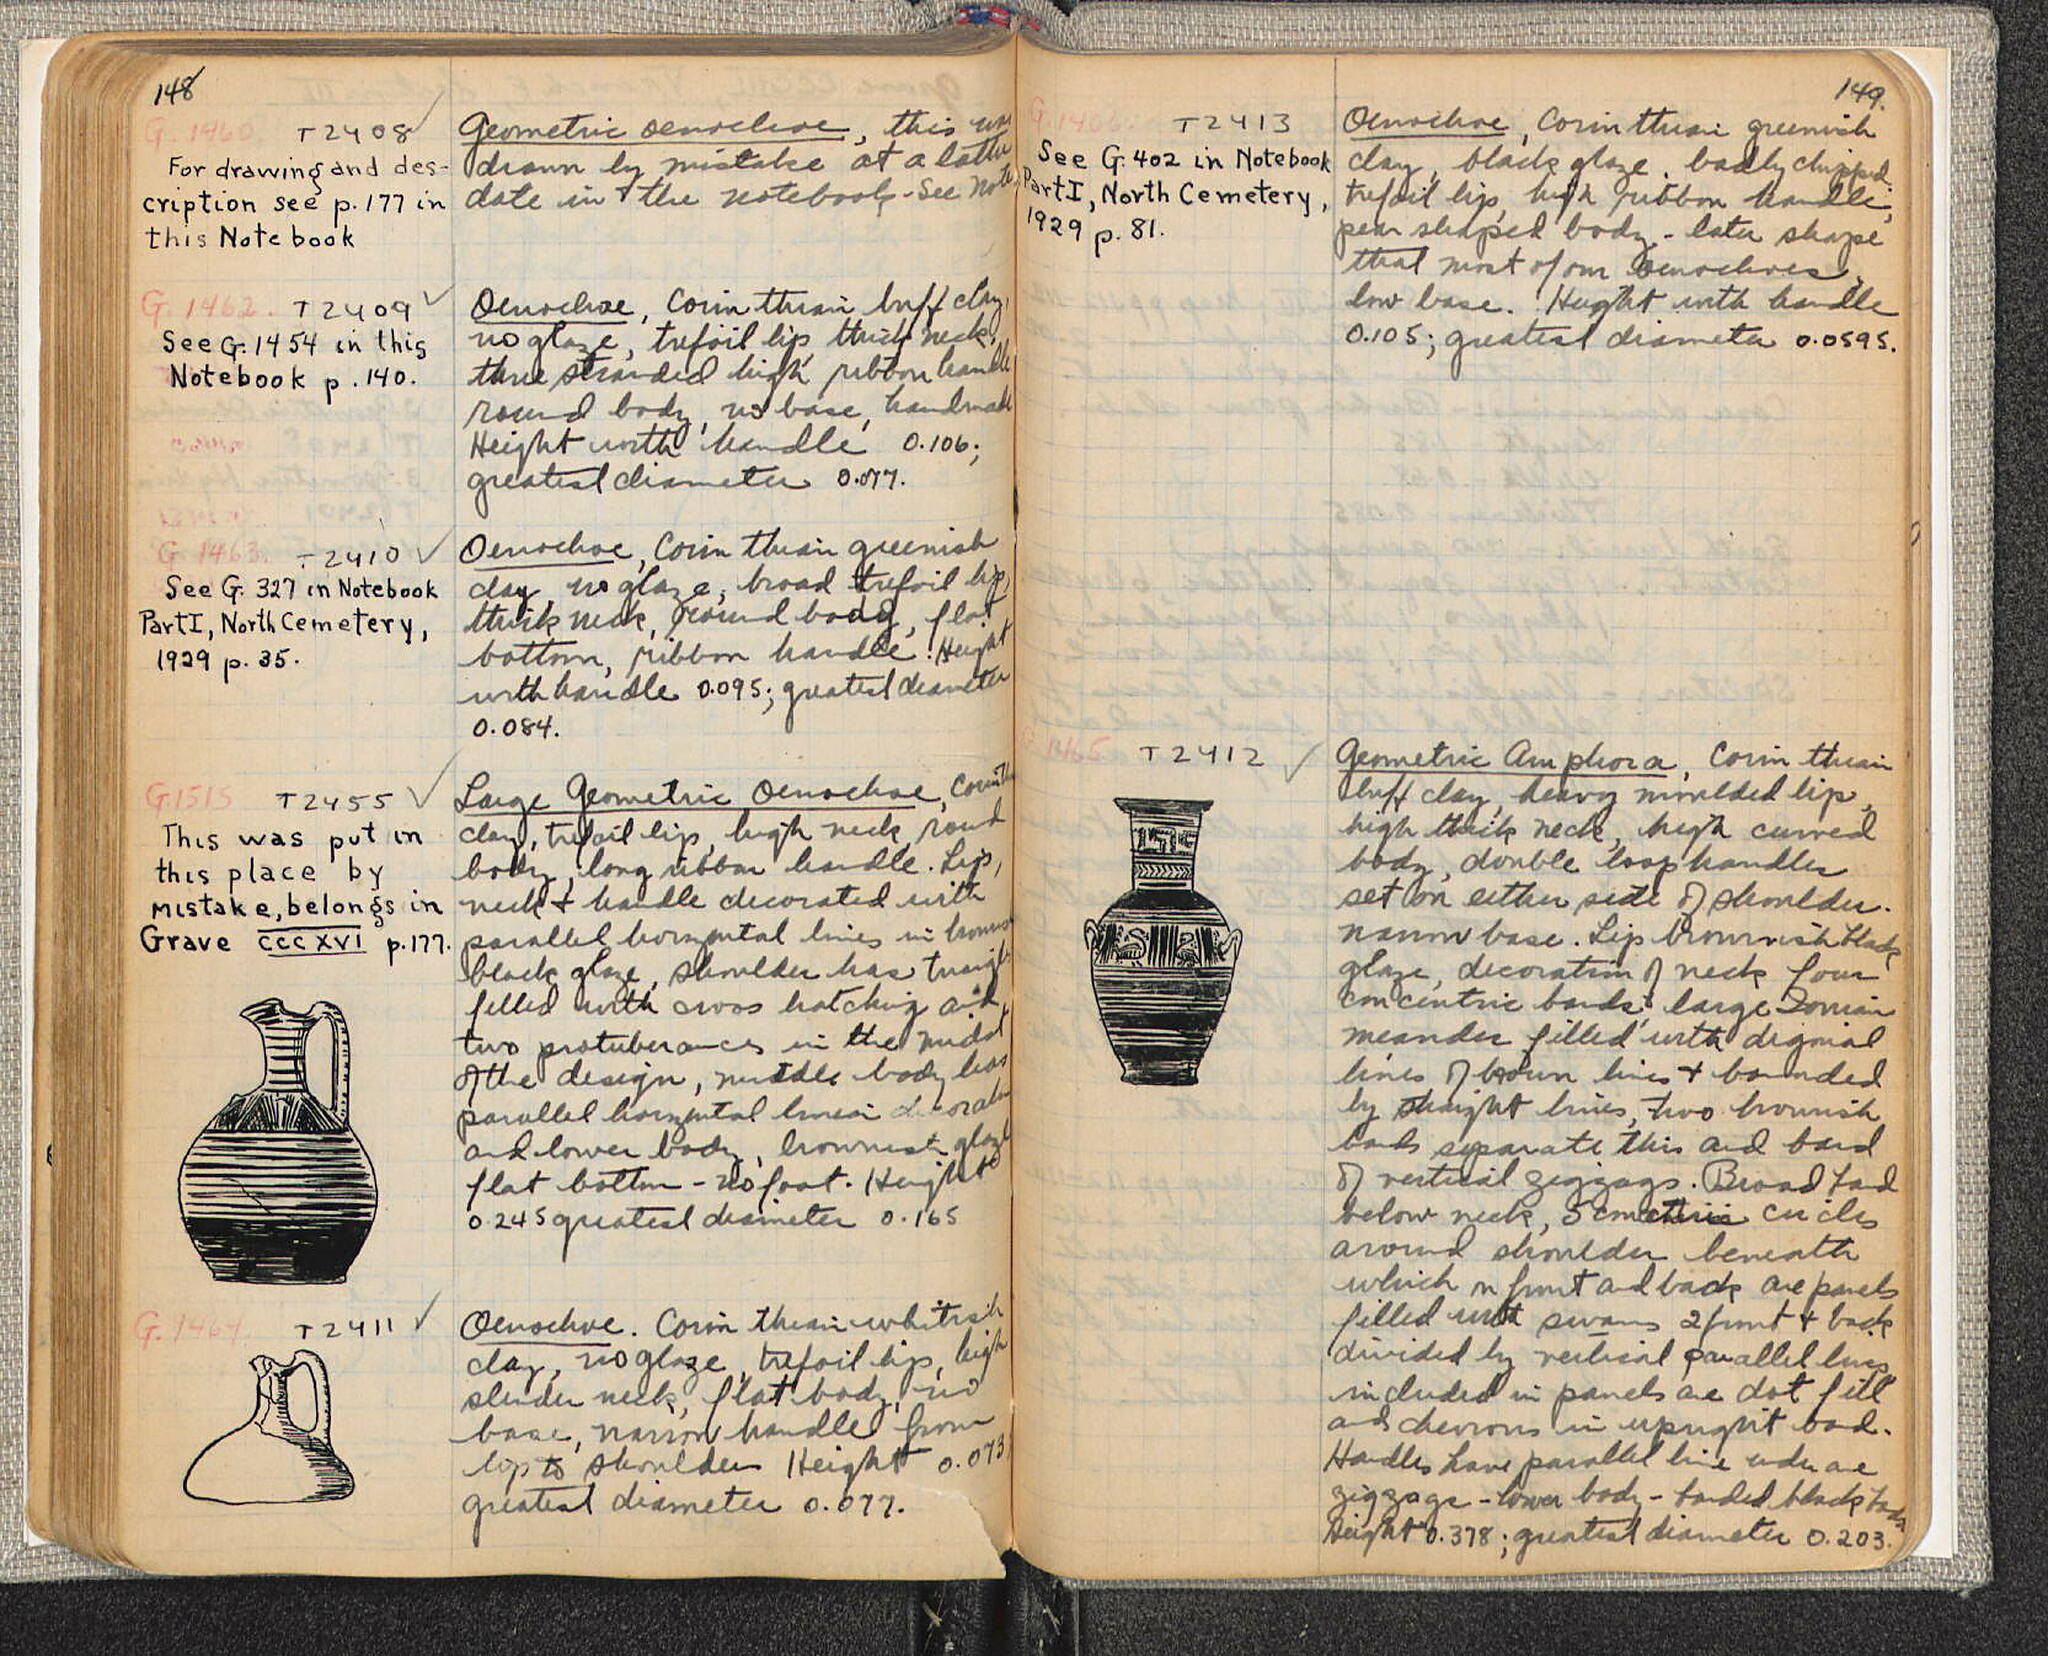 148
G. 1460 T 2408
For drawing and des-
cription see p. 177 in
this Notebook
Geometric oenochoe, this was
drawn by mistake at a latter
date in the notebook - See note
G. 1462. T 2409
See G. 1454 in this
Notebook p. 140.
Oenochoe, Corinthian buff clay,
no glaze, trefoil lip, thick neck,
three stranded high ribbon handle
round body, no base, handmade
Height with handle 0.106;
greatest diameter 0.077.
G. 1463. T 2410
See G. 327 in Notebook
Part I, North Cemetery,
1929 p. 35.
Oenochoe, Corinthian greenish
clay, no glaze, broad trefoil lip,
thick neck, round body, flat
bottom, ribbon handle. Height
with handle 0.095; greatest diameter
0.084.
G 1515 T 2455
This was put in
this place by
mistake, belongs in
Grave CCCXVI p. 177.
Large Geometric Oenochoe, Corinth
clay, trefoil lip, high neck, round
body, long ribbon handle. Lip,
neck + handle decorated with
parallel horizontal lines in brown
black glaze, shoulder has triangles
filled with cross hatching and
two protuberances in the midst
of the design, middle body has
parallel horizontal linear decoration
and lower body, brownish glaze
flat bottom - no foot. Height
0.245 greatest diameter 0.165
G. 1464 T 2411
Oenochoe. Corinthian whitish
clay, no glaze, trefoil lip, high
slender neck, flat body, no
base, narrow handle from
lip to shoulder Height 0.073
greatest diameter 0.077.
149.
G. 1406. T 2413
See G. 402 in Notebook
Part I, North Cemetery,
1929 p. 81.
Oenochoe, Corinthian greenish
clay, black glaze, badly chipped,
trefoil lip, high ribbon handle,
pear shaped body - later shape
that most of our oenochoes,
low base. Height with handle
0.105; greatest diameter 0.0595.
G. 1465 T 2412
Geometric Amphora, Corinthian
buff clay, heavy moulded lip,
high thick neck, high curved
body, double loop handles
set on either side of shoulder.
narrow base. Lip brownish black
glaze, decoration of neck four
concentric bands; large Ionian
meander filled with diagonal
lines of brown lines + bounded
by straight lines, two brownish
bands separate this and band
of vertical zigzags. Broad band
below neck, 5 circles
around shoulder beneath
which on front and back are panels
filled with swans 2 front + back
divided by vertical parallel lines
included in panels are dot fill
and chevrons in upright band.
Handles have parallel line under are
zigzags - lower body - banded black bands
Height 0.378; greatest diameter 0.203.